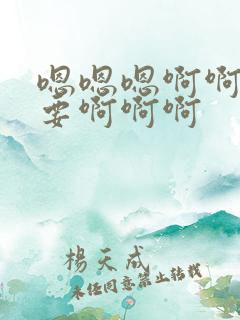 嗯嗯嗯啊啊
要啊啊啊
楊天成
未经同意禁止转载